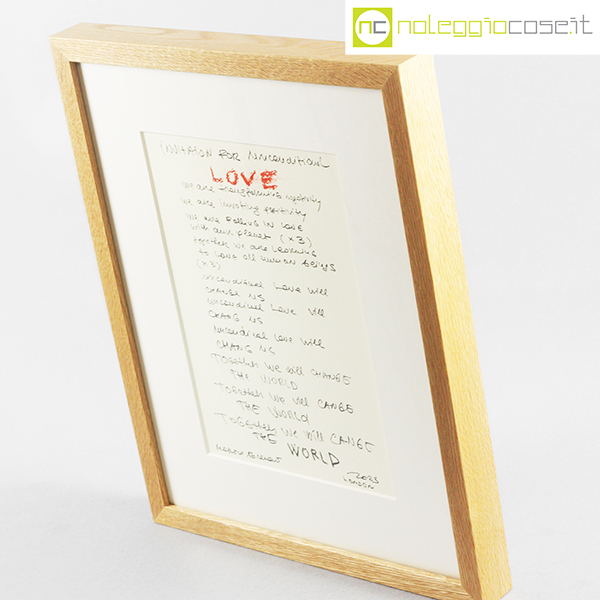 nc noleggiocose.it
INVITATION FOR UNCONDITIONAL
LOVE
we are transforming negativity
we are inviting positivity
we are FALLING IN LOVE
with our planet (x3)
together we are LEARNING
to LOVE ALL HUMAN BEINGS
(x3)
unconditional LOVE will
CHANGE US
unconditional LOVE will
CHANG US
unconditional Love will
CHANG US
TOGETHER WE will CHANGE
THE WORLD
TOGETHER WE will CANGE
THE WORLD
TOGETHER WE will CANGE
THE WORLD
2023
LONDON